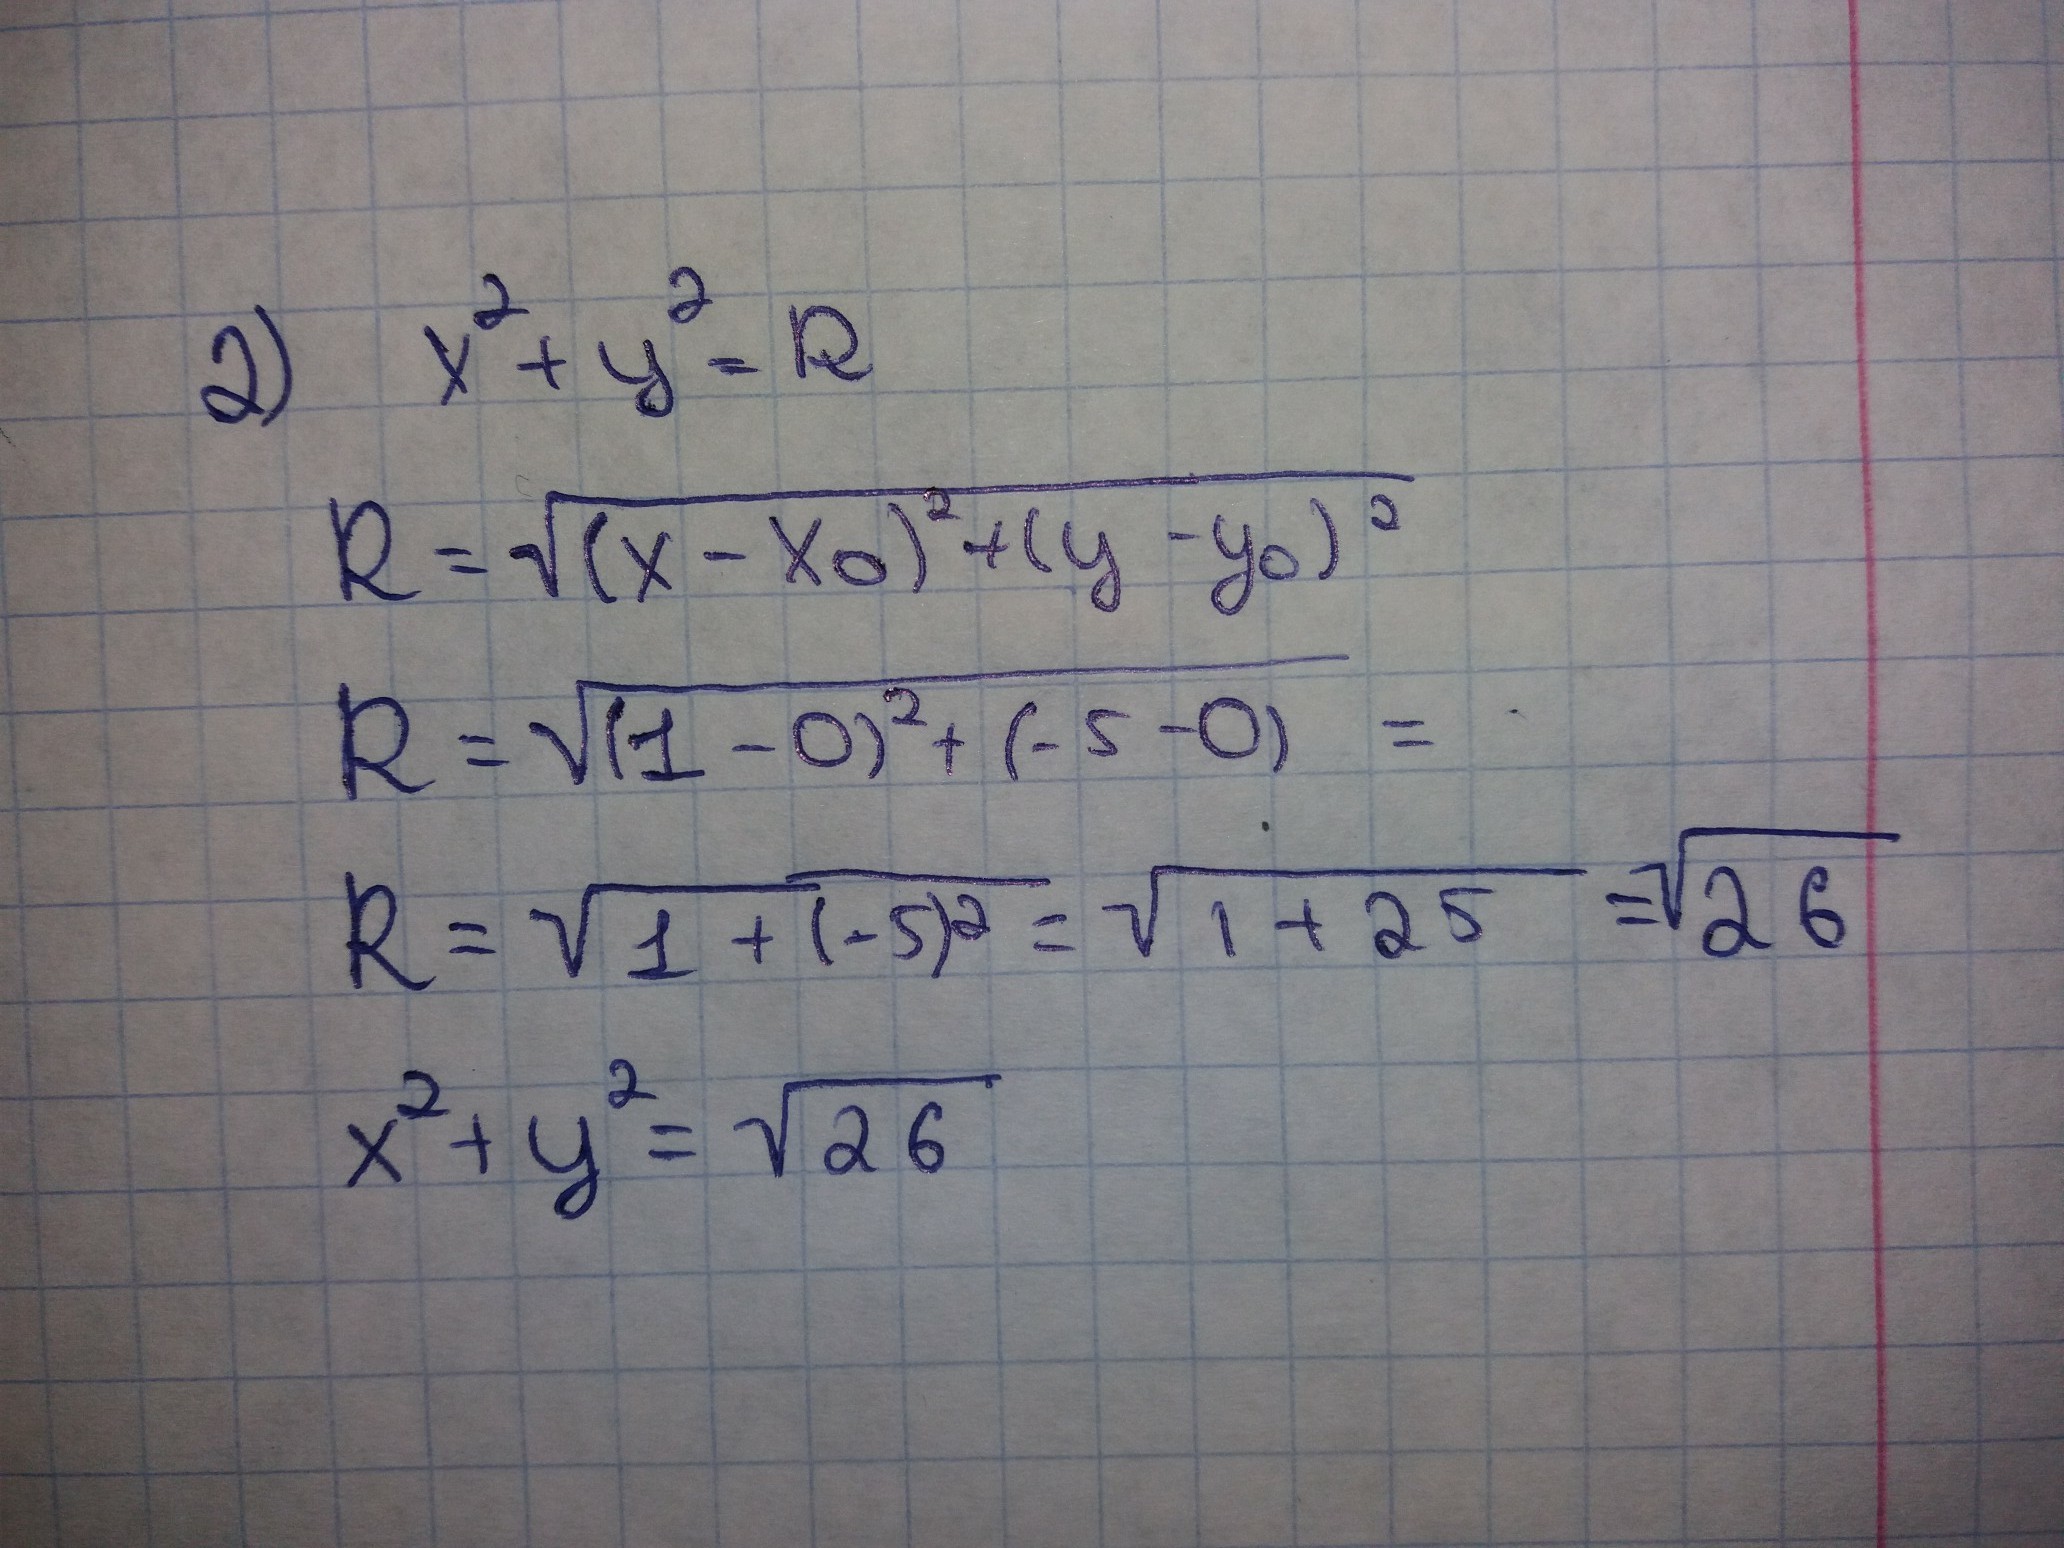 2) x² + y² = R
R = √(x - x₀)² + (y - y₀)²
R = √(1 - 0)² + (-5 - 0) =
R = √1 + (-5)² = √1 + 25 = √26
x² + y² = √26